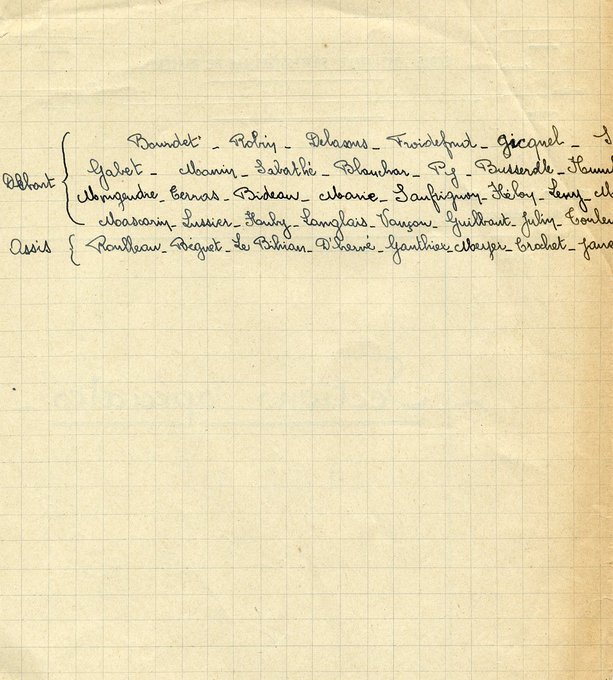 Bourdet - Robin - Delasons - Froidefond - Gicquel -
Debout { Gabet - Manin - Labarthé - Blanchar - Py - Busserolle -
Mongendre - Terras - Bideau - Marie - Saufrignon - Héloy - Leray -
Mascarin - Lussier - Hauby - Langlais - Vançon - Guilbaut - Julin -
Assis { Roulleau - Béguet - Le Bihian - D'hervé - Gauthier - Meyer - Crochet -